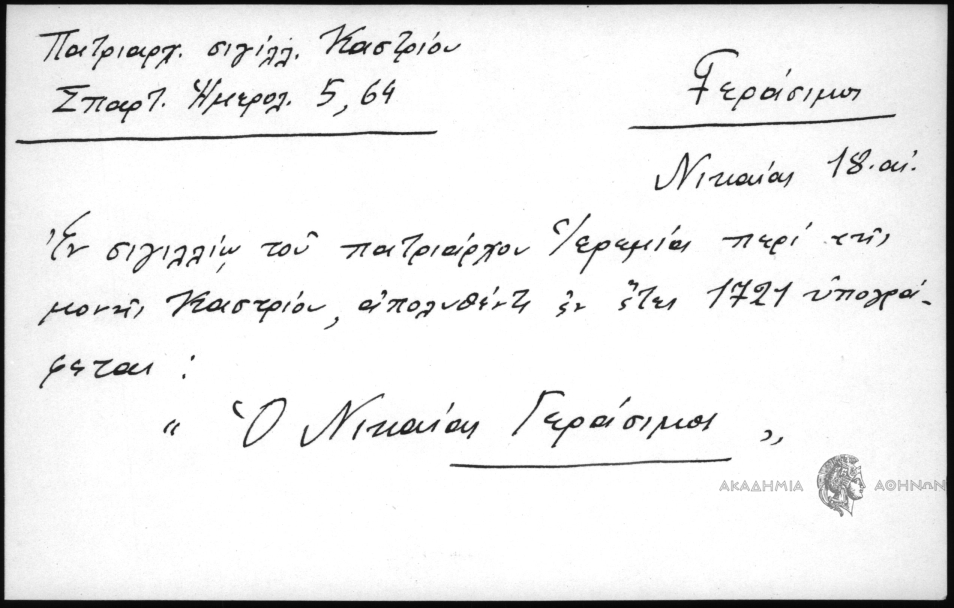 Πατριαρχ. σιγίλλ. Καστρίου
Σπαρτ. Ἡμερολ. 5, 64
Γεράσιμος
Νικαίας 18. αἰ.
Ἐν σιγιλλίῳ τοῦ πατριάρχου Ἱερεμία περὶ τῆς
μονῆς Καστρίου, ἀπολυθέντι ἐν ἔτει 1721 ὑπογρά-
φεται :
" Ὁ Νικαίας Γεράσιμος "
ΑΚΑΔΗΜΙΑ ΑΘΗΝΩΝ